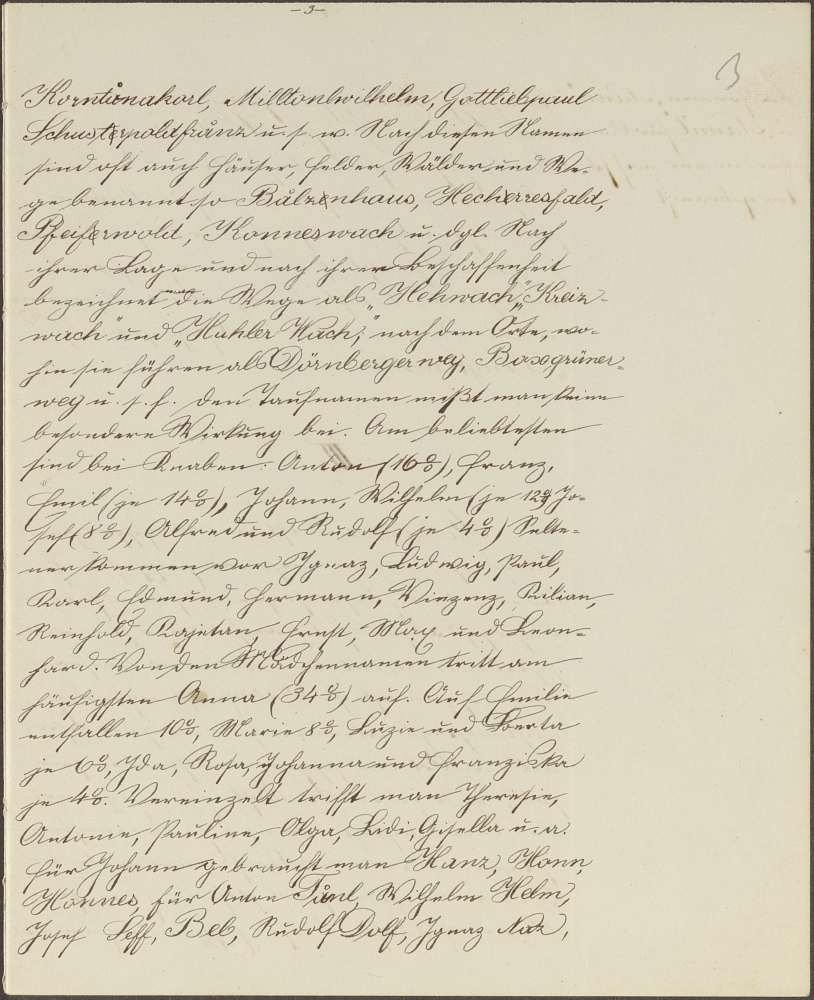 -3-
3
Korntůnakarl, Milltonlwilhelm, Gottliebpaul
Schusterpoldfrånz u. s. w. Nach diesen Namen
sind oft auch Häuser, Felder, Wälder und We-
ge benannt so Bålzenhaus, Hecherresfald,
Pfeiferwold, Konneswach u. dgl. Nach
ihrer Lage und nach ihrer Beschaffenheit
bezeichnet man die Wege als „Hehwach", „Kreiz-
wach" und „Huhler Wach", nach dem Orte, wo-
hin sie führen als Dörnbergerweg, Boxgrüner-
weg u. s. f. Den Taufnamen mißt man keine
besondere Wirkung bei. Am beliebtesten
sind bei Knaben: Anton (16%), Franz,
Emil (je 14%), Johann, Wilhelm (je 12%) Jo-
sef (8%), Alfred und Rudolf (je 4%) Selte-
ner kommen vor Ignaz, Ludwig, Paul,
Karl, Edmund, Hermann, Vinzenz, Kilian,
Reinhold, Kajetan, Ernst, Max und Leon-
hard. Von den Mädchennamen tritt am
häufigsten Anna (34%) auf. Auf Emilie
entfallen 10%, Marie 8%, Luzie und Berta
je 6%, Ida, Rosa, Johanna und Franziska
je 4%. Vereinzelt trifft man Theresie,
Antonie, Pauline, Olga, Lidi, Gisella u. a.
Für Johann gebraucht man Hanz, Honn,
Honnes, für Anton Tůnl, Wilhelm Helm,
Josef Seff, Beb, Rudolf Dolf, Ignaz Naz,